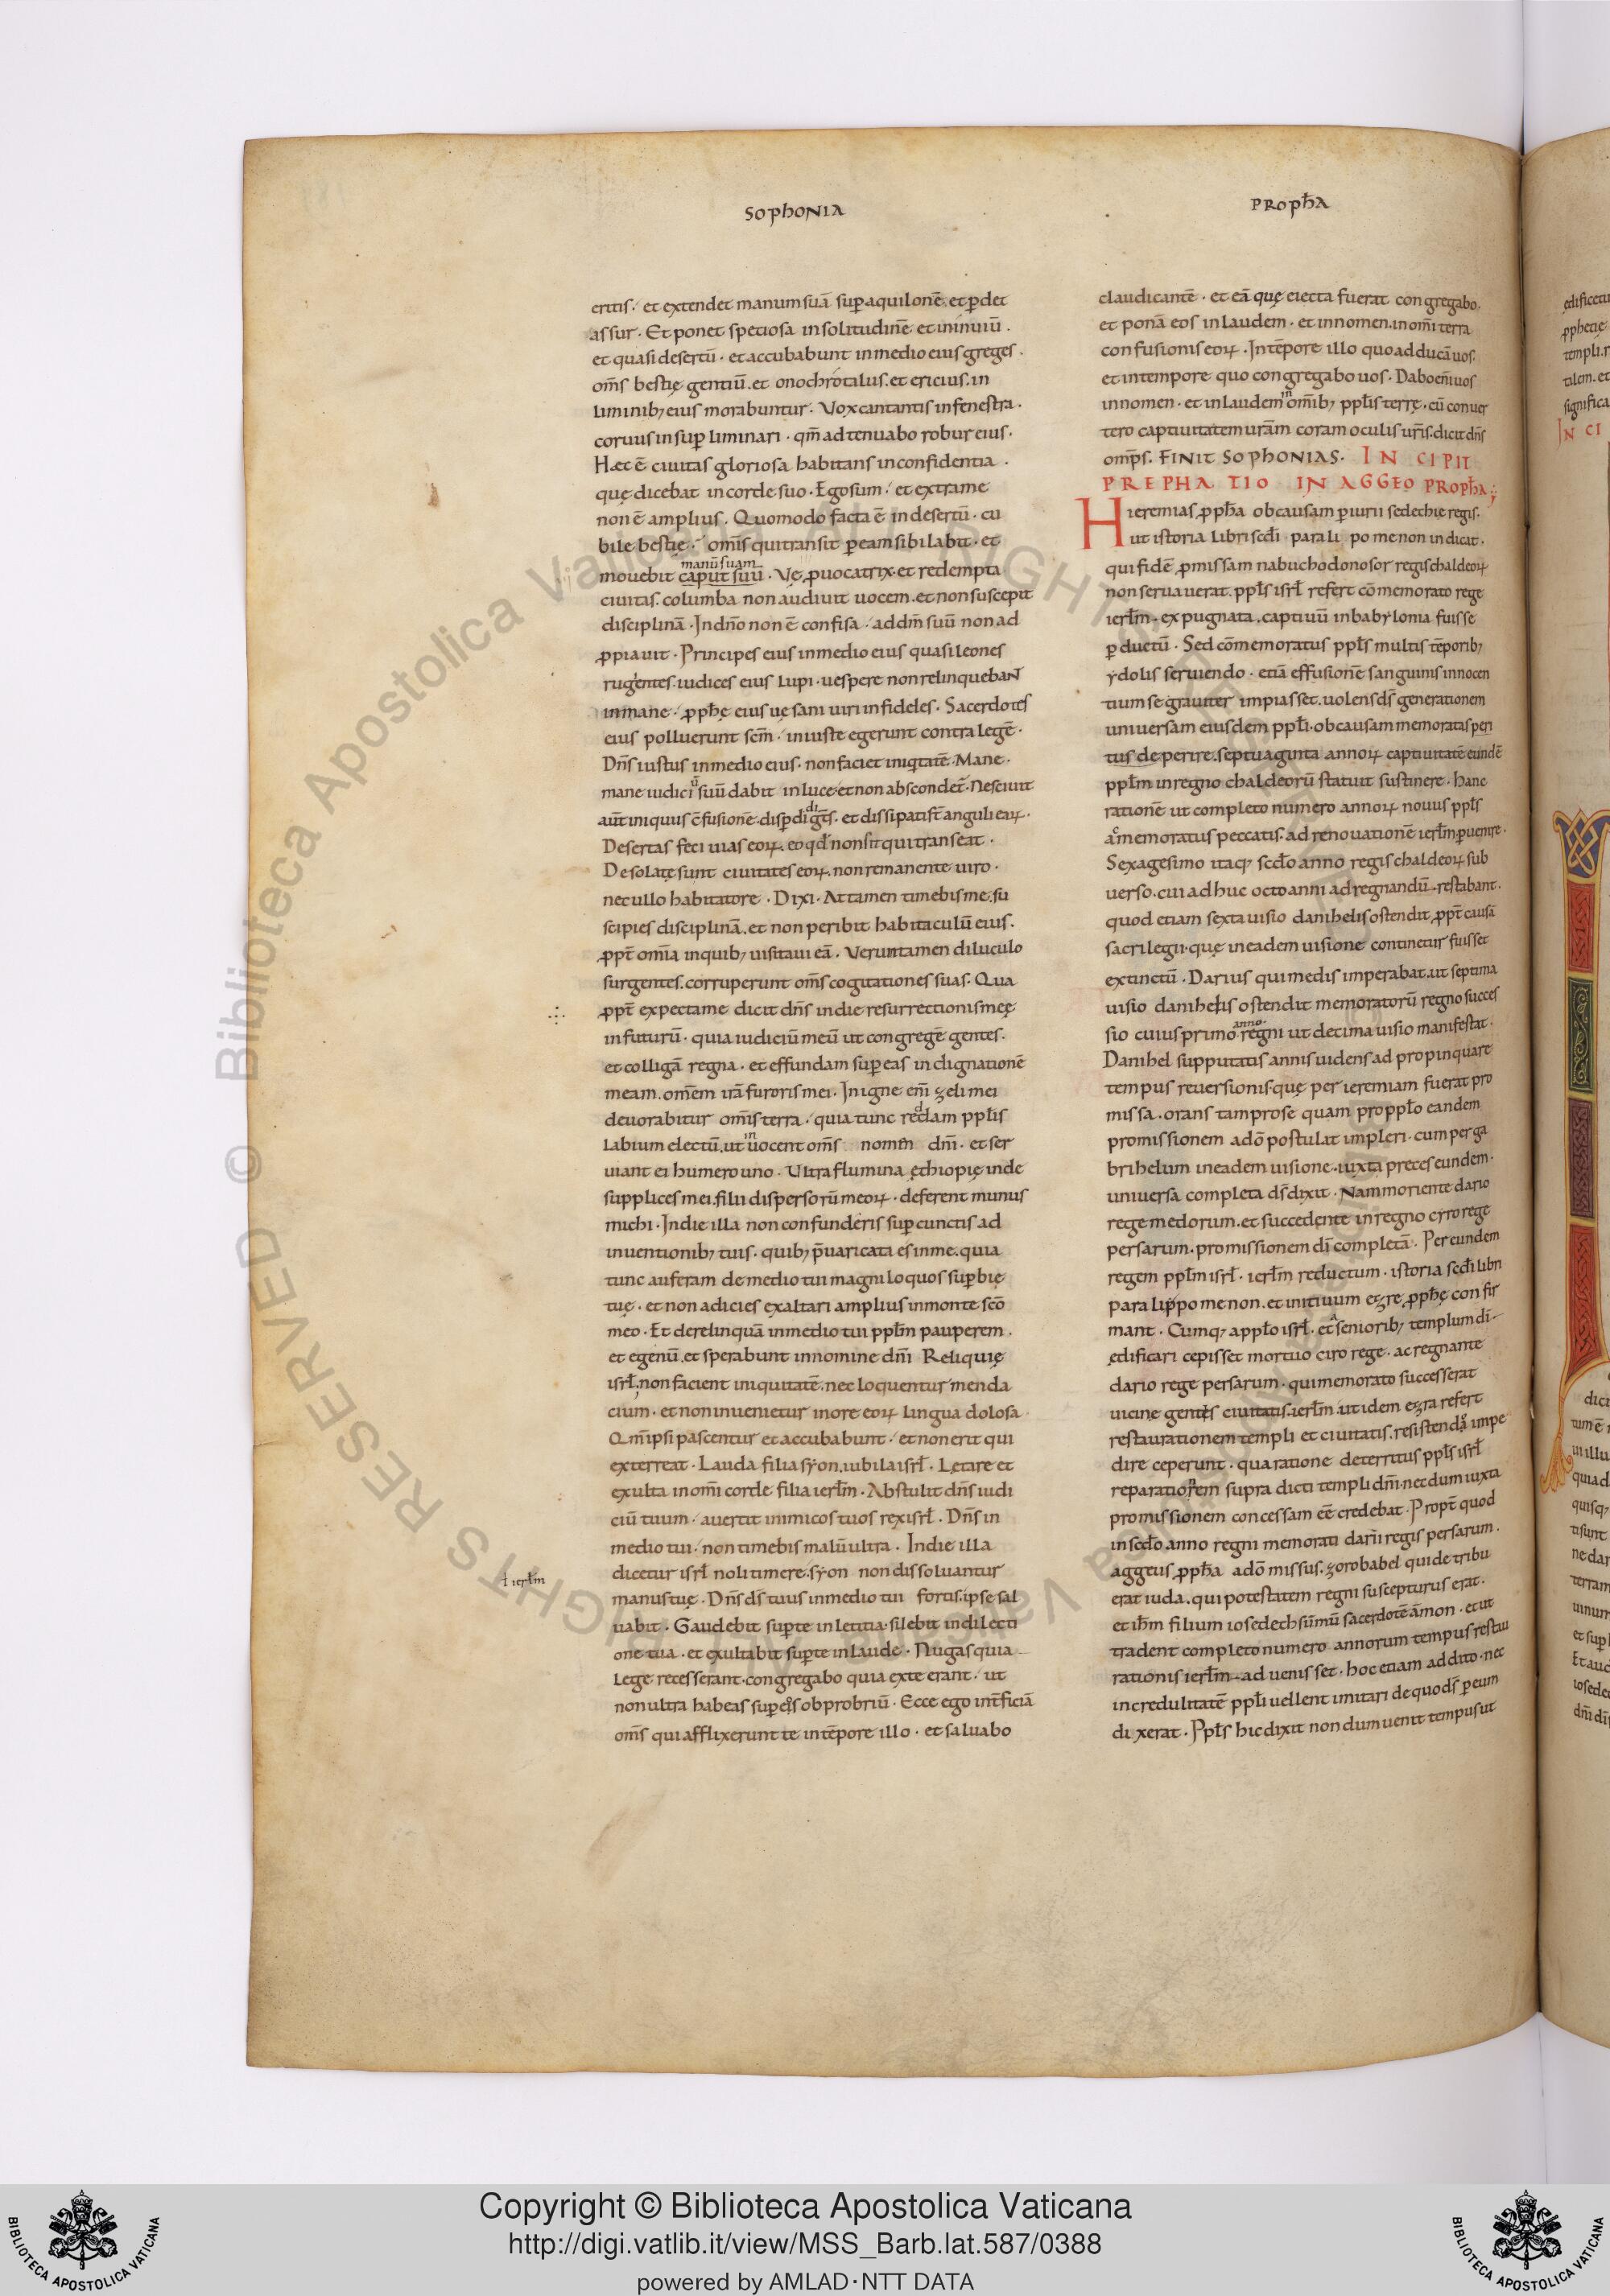 SOPHONIA
PROPħA
eritis. et extendet manum suā sup aquilonē. et pdet
assur. Et ponet speciosa in solitudinē et in inuiū.
et quasi desertū. et accubabunt in medio eius greges.
om̄s bestię gentiū. et onochrotalus. et ericius. in
liminib; eius morabuntur. Vox cantantis in fenestra.
coruus in sup liminari. qm̄ adtenuabo robur eius.
Hæc ē ciuitas gloriosa habitans in confidentia.
quę dicebat in corde suo. Ego sum. et extra me
non ē amplius. Quomodo facta ē in desertū. cu
bile bestię. om̄is qui transit p eam sibilabit. et
manū suam
mouebit caput suū. Vę puocatrix. et redempta
ciuitas. columba non audiuit uocem. et non suscepit
disciplinā. In dn̄o non ē confisa. ad dm̄ suū non ad
ppiauit. Principes eius in medio eius quasi leones
rugientes. iudices eius lupi. uespere non relinquebant
in mane. pphę eius uęsani uiri infideles. Sacerdotes
eius polluerunt scm̄. iniuste egerunt contra legē.
Dn̄s iustus in medio eius. non faciet iniqtatē. Mane.
mane iudiciū suū dabit in luce. et non abscondet̄. Nesciuit
aut̄ iniquus c̄fusionē. dispdidi gt̄s. et dissipati st̄ anguli eaꝝ.
Desertas feci uias eoꝝ. eo qđ non sit qui transeat.
Desolatę sunt ciuitates eoꝝ. non remanente uiro.
nec ullo habitatore. Dixi. Attamen timebis me. su
scipies disciplinā. et non peribit habitaculū eius.
ppt̄ om̄ia in quib; uisitaui eā. Veruntamen diluculo
surgentes. corruperunt om̄s cogitationes suas. Qua
ppt̄ expecta me dicit dn̄s in die resurrectionis meę
in futurū. quia iudiciū meū ut congregē gentes.
et colligā regna. et effundam sup eas indignationē
meam. om̄em irā furoris mei. In igne em̄ zeli mei
deuorabitur om̄is terra. quia tunc reddam ppłis
labium electū. ut inuocent om̄s nomen dn̄i. et ser
uiant ei humero uno. Ultra flumina ęthiopię inde
supplices mei. filii dispersorū meoꝝ. deferent munus
michi. In die illa non confunderis sup cunctis ad
inuentionib; tuis. quib; p̄uaricata es in me. quia
tunc auferam de medio tui magniloquos supbię
tuę. et non adicies exaltari amplius in monte sc̄o
meo. Et derelinquā in medio tui ppłm pauperem.
et egenū. et sperabunt in nomine dn̄i Reliquię
isrł. non facient iniquitatē. nec loquentur menda
cium. et non inuenietur in ore eoꝝ lingua dolosa.
Qm̄ ipsi pascentur et accubabunt. et non erit qui
exterreat. Lauda filia syon. iubila isrł. Letare et
exulta in om̄i corde filia ierłm. Abstulit dn̄s iudi
ciū tuum. auertit inimicos tuos rex isrł. Dn̄s in
medio tui. non timebis malū ultra. In die illa
ł ierłm
dicetur isrł noli timere. syon non dissoluantur
manus tuę. Dn̄s ds̄ tuus in medio tui fortis. ipse sal
uabit. Gaudebit sup te in letitia. silebit in dilecti
one tua. et exultabit sup te in laude. Nugas quia
lege recesserant. congregabo quia ex te erant. ut
non ultra habeas sup eis obprobriū. Ecce ego int̄ficiā
om̄s qui afflixerunt te in tēpore illo. et saluabo
claudicantē. et eā quę eiecta fuerat congregabo.
et ponā eos in laudem. et in nomen. in om̄i terra
confusionis eoꝝ. In tēpore illo quo adducā uos.
et in tempore quo congregabo uos. Dabo em̄ uos
in nomen. et in laudem in om̄ib; ppłis terrę. cū conuer
tero captiuitatem ur̄am coram oculis ur̄is. dicit dn̄s
omp̄s. FINIT SOPHONIAS. INCIPIT
PREPHATIO IN AGGEO PROPħA;
Hieremias ppħa ob causam piurii sedechię regis.
ut istoria libri scđi paralipomenon indicat.
qui fidē pmissam nabuchodonosor regis chaldeoꝝ
non seruauerat. ppłs isrł refert cōmemorato rege
ierłm. expugnata. captiuū in babylonia fuisse
pductū. Sed cōmemoratus ppłs multis tēporib;
ydolis seruiendo. etiā effusionē sanguinis innocen
tium se grauiter impiasset. uolens ds̄ generationem
uniuersam eiusdem ppłi. ob causam memoratas peri
tus deperire. septuaginta annoꝝ captiuitatē eundē
ppłm in regno chaldeorū statuit sustinere. hanc
rationē ut completo numero annoꝝ nouus ppłs
a memoratus peccatis. ad renouationē ierłm puenire.
Sexagesimo itaq; scđo anno regis chaldeoꝝ sub
uerso. cui adhuc octo anni ad regnandū. restabant.
quod etiam sexta uisio danihelis ostendit. ppt̄ causā
sacrilegii. quę in eadem uisione continetur fuisset
extinctū. Darius qui medis imperabat. ut septima
uisio danihelis ostendit memoratorū regno succes
sio cuius primo anno regni ut decima uisio manifestat.
Danihel supputatis annis uidens adpropinquare
tempus reuersionis. quę per ieremiam fuerat pro
missa. orans tam pro se quam pro ppło eandem
promissionem a dō postulat impleri. cum per ga
brihelum in eadem uisione. iuxta preces eundem.
uniuersa completa ds̄ dixit. Nam moriente dario
rege medorum. et succedente in regno cyro rege
persarum. promissionem dī completā. Per eundem
regem ppłm isrł. ierłm reductum. istoria scđi libri
paralippomenon. et initium ezre pphę confir
mant. Cumq; a ppło isrł. et a senioribus templum dī
ędificari cepisset mortuo ciro rege. ac regnante
dario rege persarum. qui memorato successerat
uicine gentes ciuitatis. ierłm. ut idem ezra refert
restaurationem templi et ciuitatis. resistendo impe
dire ceperunt. qua ratione deterritus ppłs isrł
reparationem supra dicti templi dn̄i. necdum iuxta
promissionem concessam eē credebat. Propt̄ quod
in scđo. anno regni memorati darii regis persarum.
aggeus ppħa a dō missus. zorobabel qui de tribu
erat iuda. qui potestatem regni suscepturus erat.
et ihm̄ filium iosedech sūmū sacerdotē āmon. et ut
tradent completo numero annorum tempus restau
rationis ierłm. aduenisset. hoc etiam addito. nec
incredulitatē ppłi uellent imitari de quo ds̄ p eum
dixerat. Ppłs hic dixit nondum uenit tempus ut
Copyright © Biblioteca Apostolica Vaticana
http://digi.vatlib.it/view/MSS_Barb.lat.587/0388
powered by AMLAD·NTT DATA